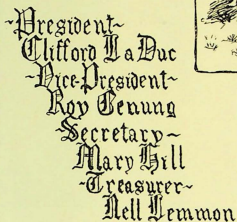 ~President~
Clifford LaDuc
~Vice-President~
Roy Genung
~Secretary~
Mary Hill
~Treasurer~
Nell Lemmon